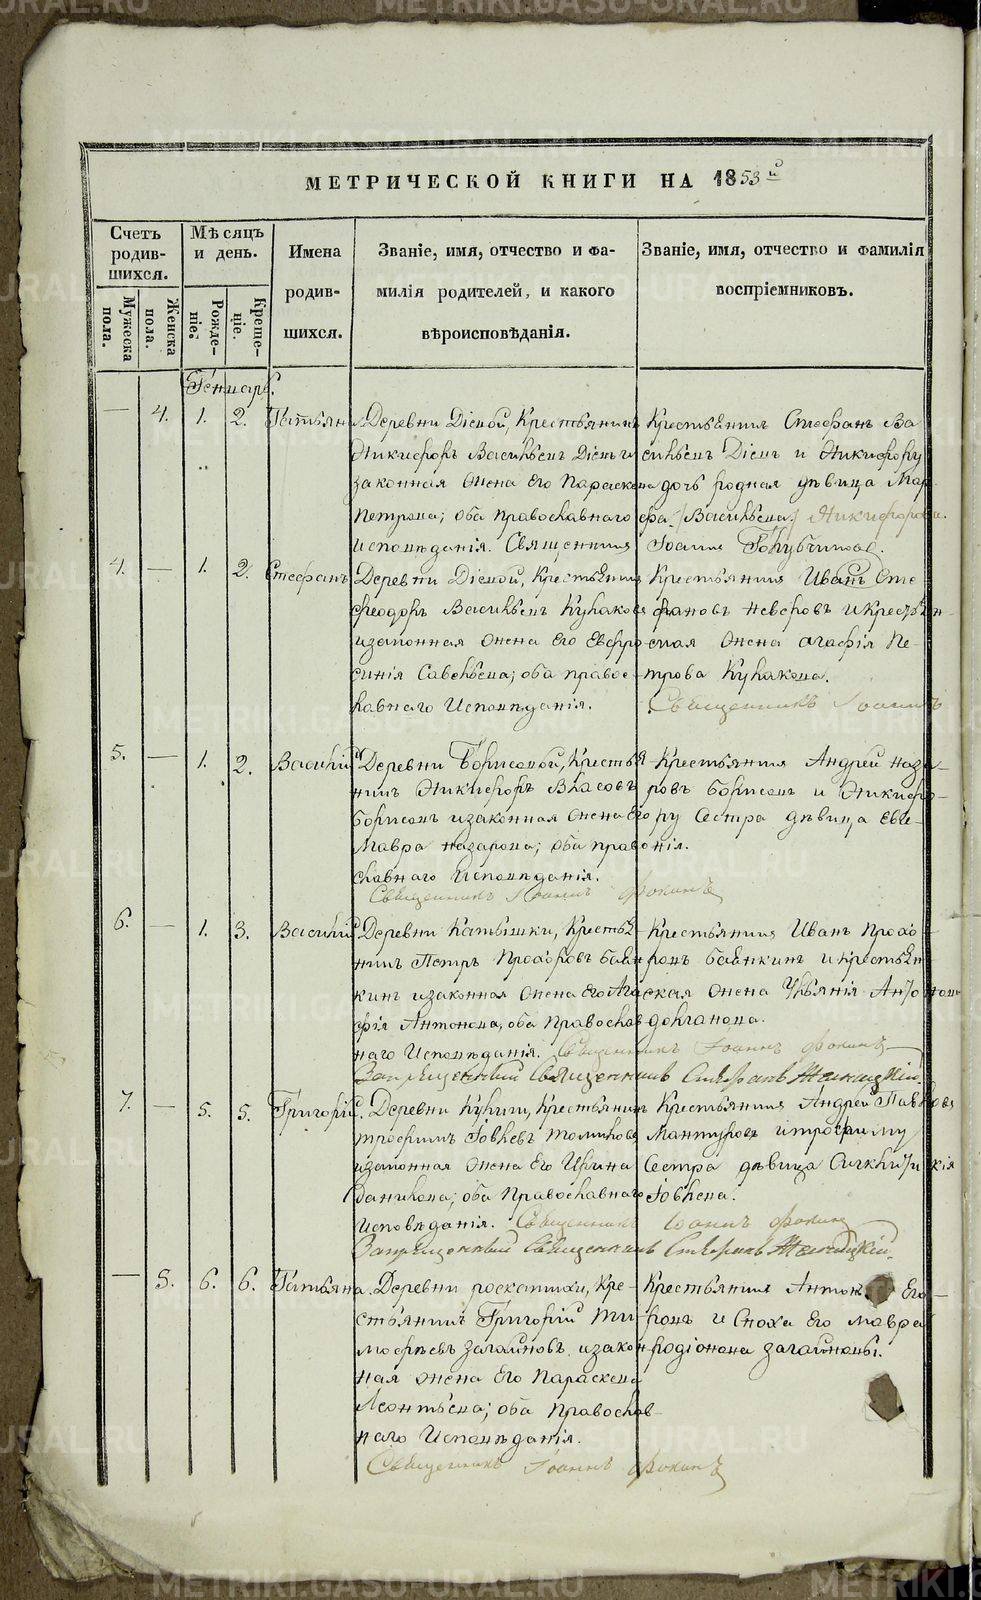 МЕТРИЧЕСКОЙ КНИГИ НА 1853й
Счетъ родив-шихся.
Мѣсяцъ и день.
Имена родив-шихся.
Званіе, имя, отчество и фа-
милія родителей, и какого
вѣроисповѣданія.
Званіе, имя, отчество и фамилія
воспріемниковъ.
Мужеска пола.
Женска пола.
Рожде-ніе.
Креще-ніе.
Генварь.
— 4. 1. 2. Татьяна
Деревни Діевой, Крестьянинъ
Никифоръ Васильевъ Діевъ и
законная жена его Параскева
Петрова; оба православнаго
исповѣданія. Священникъ
Крестьянинъ Стефанъ Ва
сильевъ Діевъ и Никифору
дочь родная дѣвица Мар-
фа (Васильева) Никифорова.
Іоаннъ
4. — 1. 2. Стефанъ
Деревни Діевой, Крестьянинъ
Феодоръ Васильевъ Кулаковъ
и законная жена его Евфро-
синія Савельева; оба правос-
лавнаго Исповѣданія.
Крестьянинъ Иванъ Сте
фановъ Неверовъ и крестьян-
ская жена Агафія Пе-
трова Кулакова.
Священникъ Іоаннъ
5. — 1. 2. Василій
Деревни Борисовой, Крестья-
нинъ Никифоръ Власовъ
Борисовъ и законная жена Его
Мавра Назарова; оба право
славнаго Исповѣданія.
Священникъ Іоаннъ Фокинъ
Крестьянинъ Андрей Наза-
ровъ Борисовъ и Никифо-
ру Сестра дѣвица Евге-
нія.
6. — 1. 3. Василій
Деревни Катышки, Крестья-
нинъ Петръ Прохоровъ Баян
кинъ и законная жена Его Ага
фія Антонова, оба Православ
наго Исповѣданія. Священникъ Іоаннъ Фокинъ
Запрещенный Священникъ Стефанъ
Крестьянинъ Иванъ Прохо-
ровъ Баянкинъ и крестьян
ская жена Ульянія Антонова
Долганова.
7. — 5. 5. Григорій
Деревни Кулиги, Крестьянинъ
Трофимъ Іовлевъ Толмачовъ
и законная жена Его Ирина
Данилова; оба Православнаго
Исповѣданія. Священникъ Іоаннъ Фокинъ
Запрещенный Священникъ Стефанъ
Крестьянинъ Андрей Павловъ
Мантуровъ и Трофиму
Сестра дѣвица Синклитикія
Іовлева.
— 5. 6. 6. Татьяна
Деревни Роскатихи, Кре-
стьянинъ Григорій Ти-
мофѣевъ Загайновъ и закон-
ная жена Его Параскева
Леонтьева; оба Православ-
наго Исповѣданія.
Священникъ Іоаннъ Фокинъ
Крестьянинъ Антонъ Его-
ровъ и Сноха Его Мавра
Родіонова Загайновы.